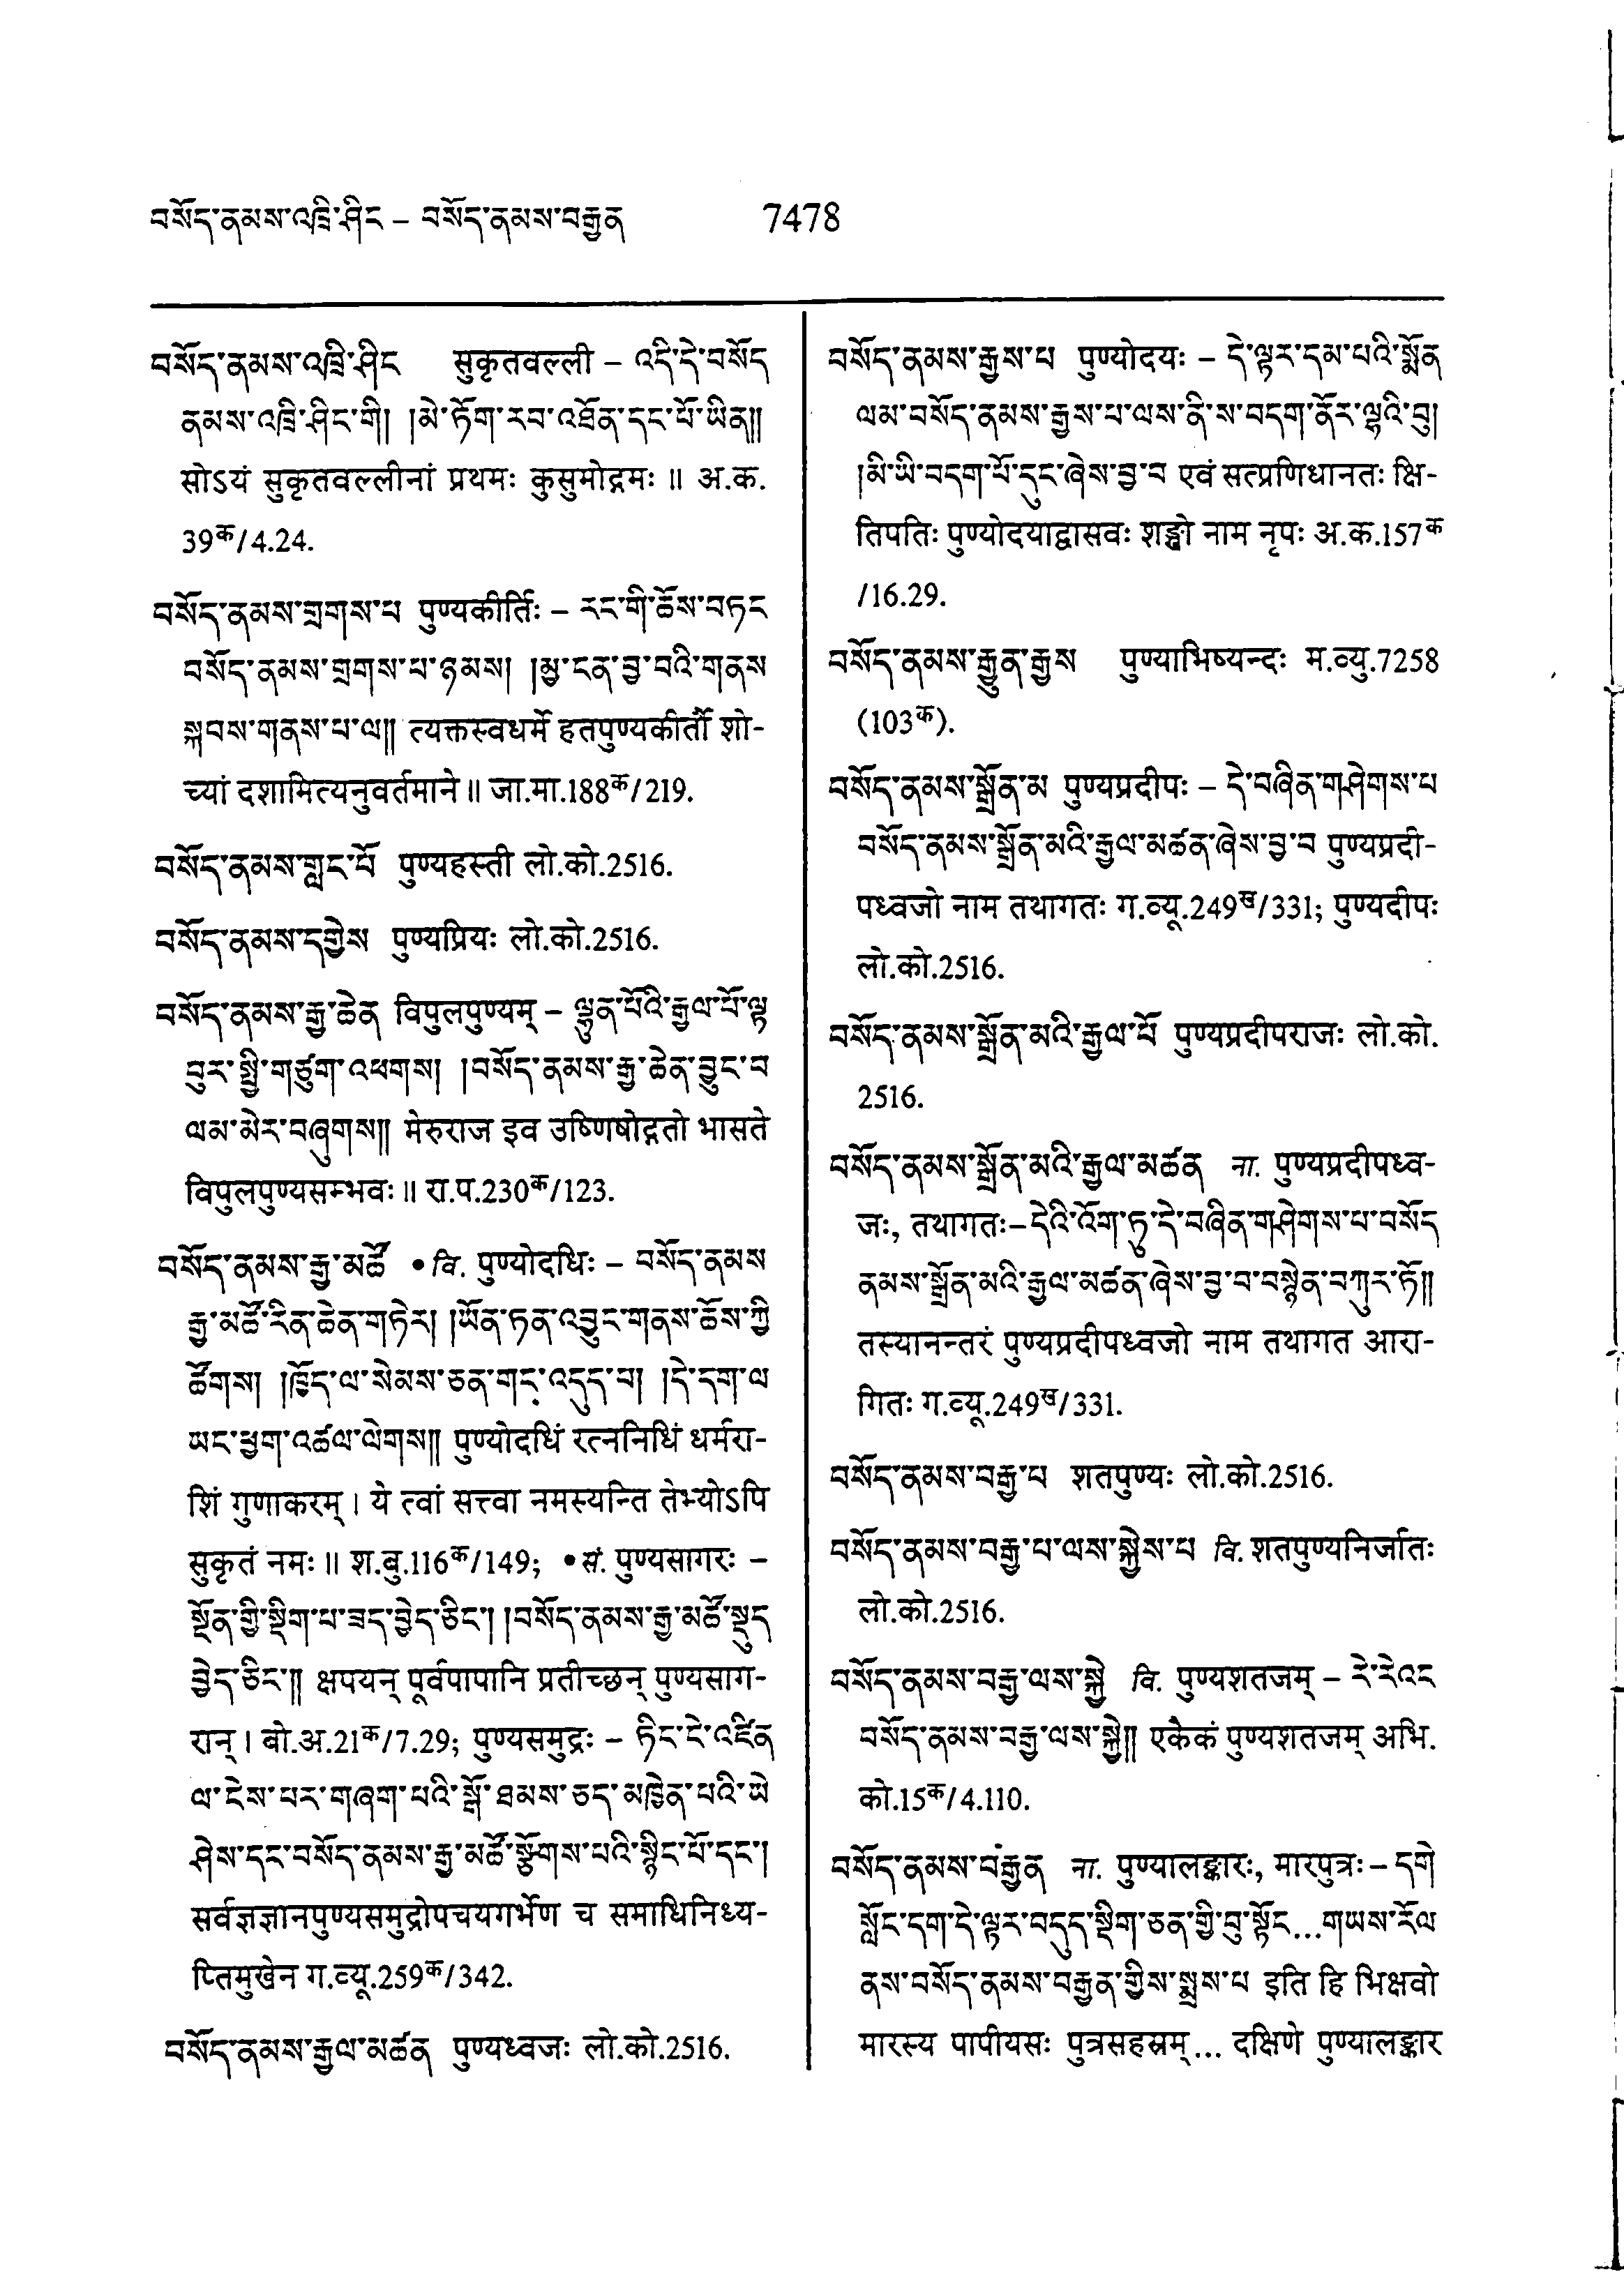 བསོད་ནམས་འཁྲི་ཤིང – བསོད་ནམས་བརྒྱན 7478
བསོད་ནམས་འཁྲི་ཤིང सुकृतवल्ली – འདི་དེ་བསོད
ནམས་འཁྲི་ཤིང་གི། །མེ་ཏོག་རབ་འཐོན་དང་པོ་ཡིན༎
सोऽयं सुकृतवल्लीनां प्रथमः कुसुमोद्गमः ॥ अ.क.
39क/4.24.
བསོད་ནམས་གྲགས་པ पुण्यकीर्तिः – རང་གི་ཆོས་བཏང
བསོད་ནམས་གྲགས་པ་ཉམས། །མྱ་ངན་བྱ་བའི་གནས
སྐབས་གནས་པ་ལ༎ त्यक्तस्वधर्मे हतपुण्यकीर्तौ शो-
च्यां दशामित्यनुवर्तमाने ॥ जा.मा.188क/219.
བསོད་ནམས་གླང་པོ पुण्यहस्ती लो.को.2516.
བསོད་ནམས་དགྱེས पुण्यप्रियः लो.को.2516.
བསོད་ནམས་རྒྱ་ཆེན विपुलपुण्यम् – ལྷུན་པོའི་རྒྱལ་པོ་ལྟ
བུར་སྤྱི་གཙུག་འཕགས། །བསོད་ནམས་རྒྱ་ཆེན་བྱུང་བ
ལམ་མེར་བཞུགས༎ मेरुराज इव उष्णिषोद्गतो भासते
विपुलपुण्यसम्भवः ॥ रा.प.230क/123.
བསོད་ནམས་རྒྱ་མཚོ • वि. पुण्योदधिः – བསོད་ནམས
རྒྱ་མཚོ་རིན་ཆེན་གཏེར། །ཡོན་ཏན་འབྱུང་གནས་ཆོས་ཀྱི
ཚོགས། །ཁྱོད་ལ་སེམས་ཅན་གང་འདུད་པ། །དེ་དག་ལ
ཡང་ཕྱག་འཚལ་ལེགས༎ पुण्योदधिं रत्ननिधिं धर्मरा-
शिं गुणाकरम् । ये त्वां सत्त्वा नमस्यन्ति तेभ्योऽपि
सुकृतं नमः ॥ श.बु.116क/149; • सं. पुण्यसागरः –
སྔོན་གྱི་སྡིག་པ་ཟད་བྱེད་ཅིང་། །བསོད་ནམས་རྒྱ་མཚོ་སྡུད
བྱེད་ཅིང་༎ क्षपयन् पूर्वपापानि प्रतीच्छन् पुण्यसाग-
रान् । बो.अ.21क/7.29; पुण्यसमुद्रः – ཏིང་ངེ་འཛིན
ལ་ངེས་པར་གཞག་པའི་སྒོ་ཐམས་ཅད་མཁྱེན་པའི་ཡེ
ཤེས་དང་བསོད་ནམས་རྒྱ་མཚོ་སྩོགས་པའི་སྙིང་པོ་དང་།
सर्वज्ञज्ञानपुण्यसमुद्रोपचयगर्भेण च समाधिनिध्य-
प्तिमुखेन ग.व्यू.259क/342.
བསོད་ནམས་རྒྱལ་མཚན पुण्यध्वजः लो.को.2516.
བསོད་ནམས་རྒྱས་པ पुण्योदयः – དེ་ལྟར་དམ་པའི་སྨོན
ལམ་བསོད་ནམས་རྒྱས་པ་ལས་ནི་ས་བདག་ནོར་ལྷའི་བུ།
།མི་ཡི་བདག་པོ་དུང་ཞེས་བྱ་བ एवं सत्प्रणिधानतः क्षि-
तिपतिः पुण्योदयाद्वासवः शङ्खो नाम नृपः अ.क.157क
/16.29.
བསོད་ནམས་རྒྱུན་རྒྱས पुण्याभिष्यन्दः म.व्यु.7258
(103क).
བསོད་ནམས་སྒྲོན་མ पुण्यप्रदीपः – དེ་བཞིན་གཤེགས་པ
བསོད་ནམས་སྒྲོན་མའི་རྒྱལ་མཚན་ཞེས་བྱ་བ पुण्यप्रदी-
पध्वजो नाम तथागतः ग.व्यू.249ख/331; पुण्यदीपः
लो.को.2516.
བསོད་ནམས་སྒྲོན་མའི་རྒྱལ་པོ पुण्यप्रदीपराजः लो.को.
2516.
བསོད་ནམས་སྒྲོན་མའི་རྒྱལ་མཚན ना. पुण्यप्रदीपध्व-
जः, तथागतः – དེའི་འོག་ཏུ་དེ་བཞིན་གཤེགས་པ་བསོད
ནམས་སྒྲོན་མའི་རྒྱལ་མཚན་ཞེས་བྱ་བ་བསྙེན་བཀུར་ཏོ༎
तस्यानन्तरं पुण्यप्रदीपध्वजो नाम तथागत आरा-
गितः ग.व्यू.249ख/331.
བསོད་ནམས་བརྒྱ་པ शतपुण्यः लो.को.2516.
བསོད་ནམས་བརྒྱ་པ་ལས་སྐྱེས་པ वि. शतपुण्यनिर्जातः
लो.को.2516.
བསོད་ནམས་བརྒྱ་ལས་སྐྱེ वि. पुण्यशतजम् – རེ་རེའང
བསོད་ནམས་བརྒྱ་ལས་སྐྱེ༎ एकैकं पुण्यशतजम् अभि.
को.15क/4.110.
བསོད་ནམས་བརྒྱན ना. पुण्यालङ्कारः, मारपुत्रः – དགེ
སློང་དག་དེ་ལྟར་བདུད་སྡིག་ཅན་གྱི་བུ་སྟོང...གཡས་རོལ
ནས་བསོད་ནམས་བརྒྱན་གྱིས་སྨྲས་པ इति हि भिक्षवो
मारस्य पापीयसः पुत्रसहस्रम्... दक्षिणे पुण्यालङ्कार